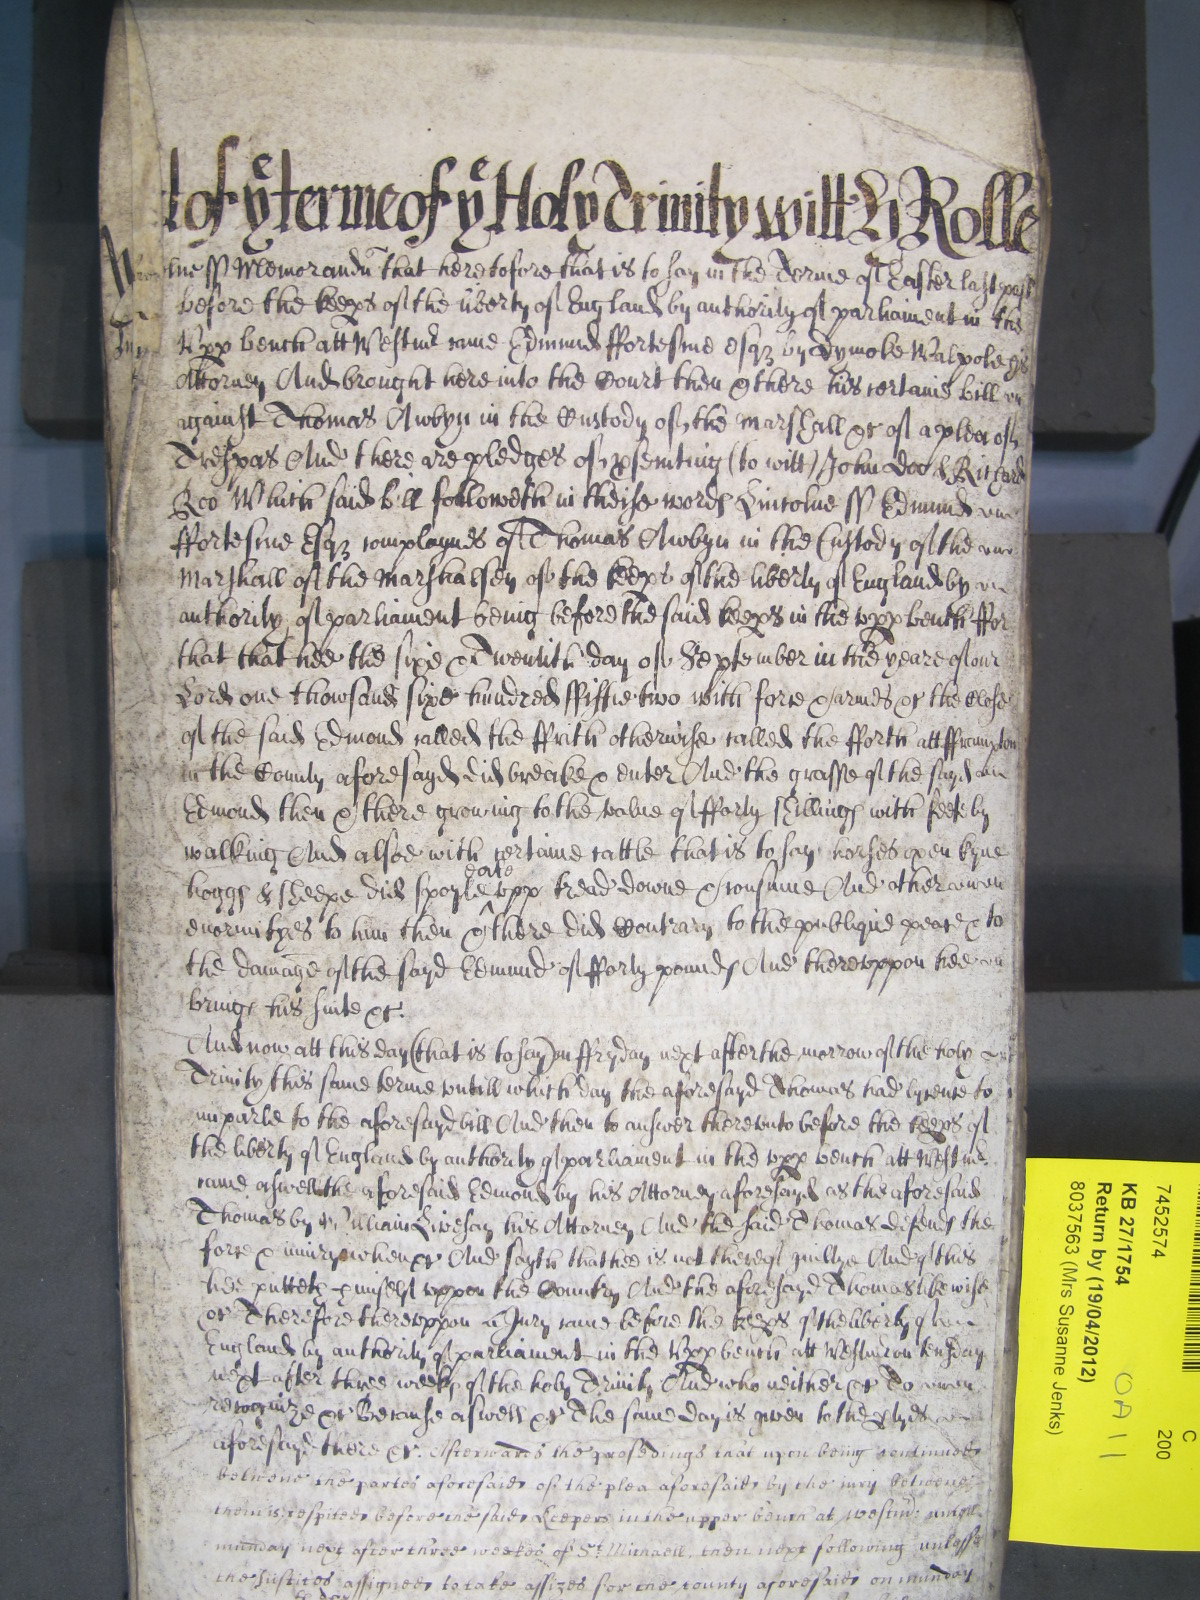 t of ye terme of ye Holy Trinity witt H Rolle
lne ss Memorandu that heretofore that is to say in the Terme of Easter last past
before the keeps of the liberty of England by authority of parliament in the
Upp bench att Westmr came Edmund ffortescue Esqz by Dymoke Walpole his
Attorney And brought here into the Court then & there his certaine bill
against Thomas Awbyn in the Custody of the Marshall &c of a plea of
Trespas And there are pledges of psenting (to witt) John Doo & Richard
Roo Which said bill followeth in theise words Lincolne ss Edmund
ffortescue Esqz complaynes of Thomas Awbyn in the Custody of the
Marshall of the Marshalsey of the keeps of the liberty of England by
authority of parliament being before the said keeps in the upp bench ffor
that that hee the sixe & Twentith day of September in the yeare of our
Lord one thowsand sixe hundred ffiftie two with force & armes &c the Close
of the said Edmond called the ffrith otherwise called the fforth att fframpton
in the County aforesayd did breake & enter And the grasse of the sayd
Edmond then & there growing to the value of fforty shillings with feete by
walking And alsoe with certaine cattle that is to say horses oxen kyne
hoggs & sheepe did spoyle eate upp tread downe & consume And other
enormityes to him then & there did Contrary to the publique peace & to
the damage of the sayd Edmund of fforty pounds And thereuppon hee
brings his suite &c.
And now att this day (that is to say) on ffryday next after the morrow of the holy
Trinity this same terme untill which day the aforesayd Thomas had lycence to
imparle to the aforesayd bill And then to answer thereunto before the keeps of
the liberty of England by authority of parliament in the upp bench att Westmr
came aswell the aforesaid Edmond by his Attorney aforesayd as the aforesaid
Thomas by William Livesay his Attorney And the said Thomas defends the
force & iniury when &c And sayth that hee is not thereof guilty And of this
hee putteth himself uppon the Country And the aforesayd Thomas likewise
&c Therefore thereuppon a Jury came before the keeps of the liberty of
England by authority of parliament in the Upp bench att Westmr on tuesday
next after three weeks of the holy Trinity And who neither &c To
recognize &c Because aswell &c The same day is given to the ptyes
aforesayd there &c. Afterwards the prosedings that upon being continued
betweene the parties aforesaid of the plea aforesaid by the iury betweene
them is respited before the said Keepers in the upper bench at Westmr untill
munday next after three weekes of St Michaell then next following unlesse
the Justices assigned to take assizes for the county aforesaid on munday
C
7452574 200
KB 27/1754
Return by (19/04/2012)
8037563 (Mrs Susanne Jenks)
OA 11